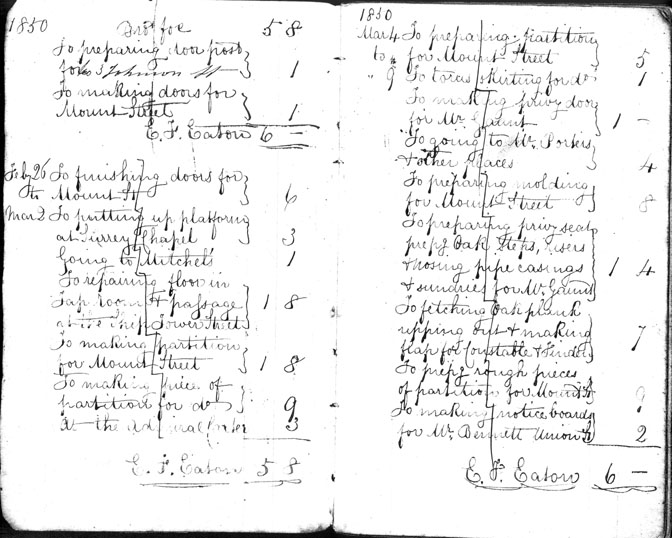 1850 Bro.t for 5 8
To preparing door post
for 1
To making doors for
Mount Street 1
E. F. Eaton 6 —
Feby 26 To finishing doors for
to Mount St 6
Mar 2 To putting up platform
at Surrey Chapel 3
Going to Mitchels 1
To repairing floor in
Tap room & passage 1 8
at the Ship Tower Street
To making partition
for Mount Street 1 8
To making piece of
partition for do 9
At the Admiral 3
E. F. Eaton 5 8
1850
Mar 4 To preparing partition
to for Mount Street 5
" 9 To skirting for do 1
To making privy door
for Mr Gaunt 1 —
To going to Mr Porkers
& other places 4
To preparing molding
for Mount Street 8
To preparing privy seat
prepg Oak Steps, risers
& nosing pipe casings 1 4
& sundries for Mr Gaunt
To fetching Oak plank
ripping out & making 7
flap for Constable &
To prepg rough pieces
of partition for Mount St 9
To making notice boards
for Mr Bennett Union St 2
E. F. Eaton 6 —